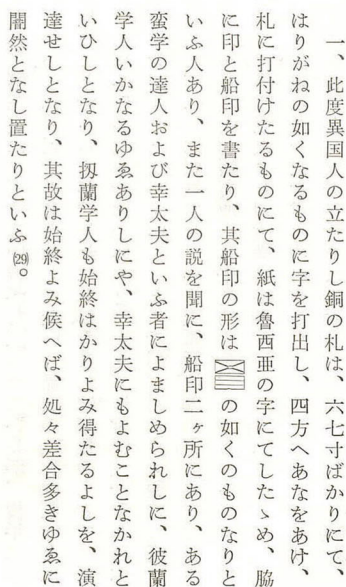 一、此度異国人の立たりし銅の札は、六七寸ばかりにて、
はりがねの如くなるものに字を打出し、四方へあなをあけ、
札に打付けたるものにて、紙は魯西亜の字にてしたゝめ、脇
に印と船印を書たり、其船印の形はの如くのものなりと
いふ人あり、また一人の説を聞に、船印二ヶ所にあり、ある
蛮学の達人および幸太夫といふ者によましめられしに、彼蘭
学人いかなるゆゑありしにや、幸太夫にもよむことなかれと
いひしとなり、扨蘭学人も始終はかりよみ得たるよしを、演
達せしとなり、其故は始終よみ候へば、処々差合多きゆゑに
闇然となし置たりといふ(29)。